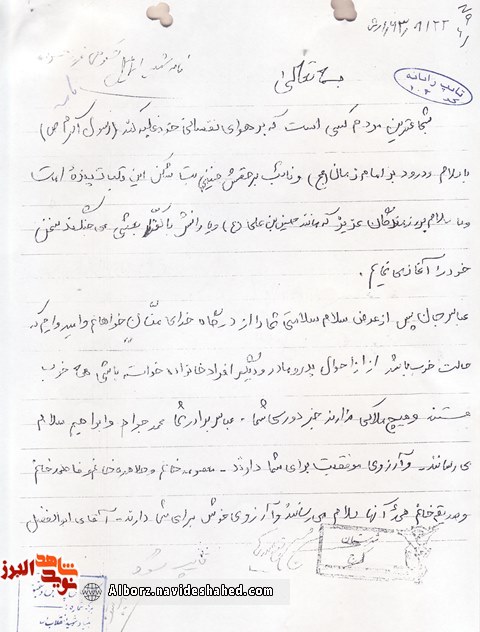 بسمه تعالی
تایپ رایانه
شجاعترین مردم کسی است که بر هوای نفسانی خود غلبه کند (رسول اکرم ص)
با سلام و درود بر امام زمان (عج) و نائب برحقش خمینی بت شکن این قلب تپنده امت
و با سلام بر رزمندگان عزیز که مانند حسین بن علی (ع) و یارانش با کفر بعثی می جنگند سخن
خود را آغاز می نمایم .
عباس جان پس از عرض سلام سلامتی شما را از درگاه خدای منان خواهانم و امیدوارم که
حالت خوب باشد از احوال پدر و مادر و دیگر افراد خانواده خواسته باشی همه خوب
هستند و هیچ ملالی ندارند جز دوری شما - عباس برادر شما محمد جواد و ابراهیم سلام
می رسانند - و آرزوی موفقیت برای شما دارند - معصومه خانم و طاهره خانم و فاطمه خانم
و صدیقه خانم همه آنها سلام می رسانند و آرزوی خوش برای شما دارند - آقای ابوالفضل
تایپ شود
شاهد
نوید
البرز
Alborz.navideshahed.com